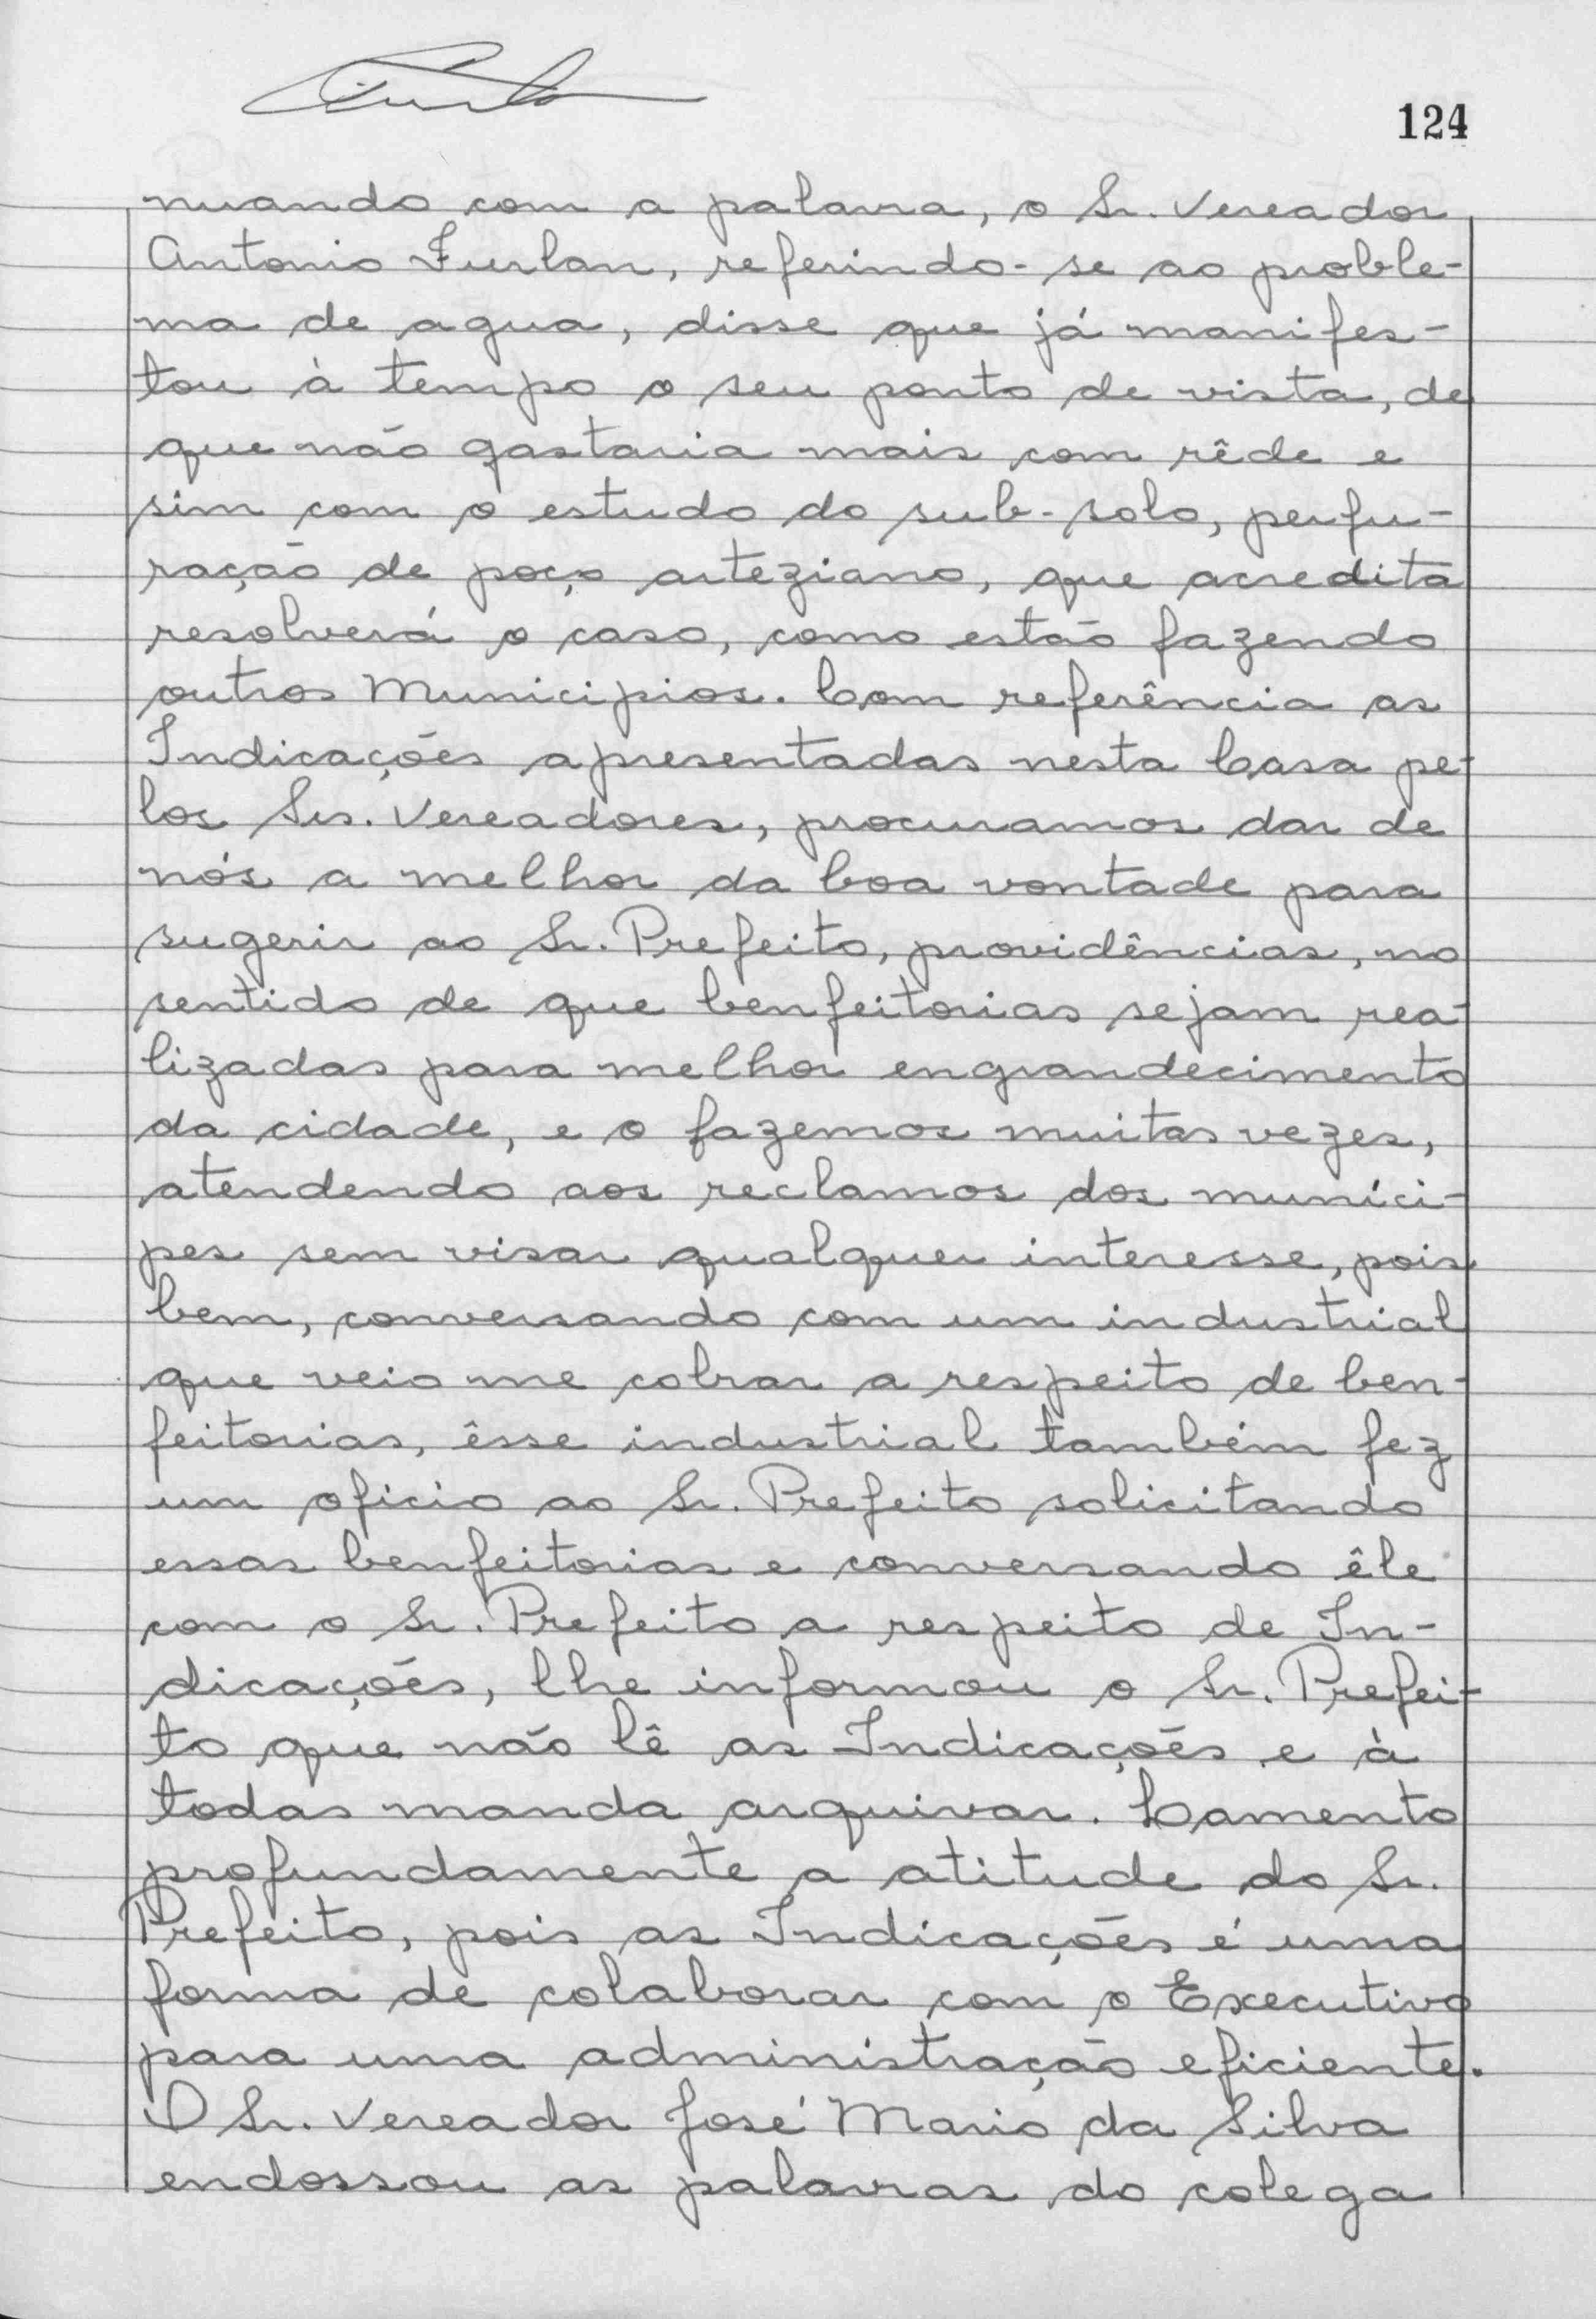 124
nuando com a palavra, o Sr. Vereador
Antonio Furlan, referindo-se ao proble-
ma de agua, disse que já manifes-
tou à tempo o seu ponto de vista, de
que não gastaria mais com rêde e
sim com o estudo do sub-solo, perfu-
ração de poço arteziano, que acredita
resolverá o caso, como estão fazendo
outros Municipios. Com referência as
Indicações apresentadas nesta Casa pe-
los Srs. Vereadores, procuramos dar de
nós a melhor da boa vontade para
sugerir ao Sr. Prefeito, providências, no
sentido de que benfeitorias sejam rea-
lizadas para melhor engrandecimento
da cidade, e o fazemos muitas vezes,
atendendo aos reclamos dos munici-
pes sem visar qualquer interesse, pois
bem, conversando com um industrial
que veio me cobrar a respeito de ben-
feitorias, êsse industrial também fez
um oficio ao Sr. Prefeito solicitando
essas benfeitorias e conversando êle
com o Sr. Prefeito a respeito de In-
dicações, lhe informou o Sr. Prefei-
to que não lê as Indicações e à
todas manda arquivar. Lamento
profundamente a atitude do Sr.
Prefeito, pois as Indicações é uma
forma de colaborar com o Executivo
para uma administração eficiente.
O Sr. Vereador José Mario da Silva
endossou as palavras do colega